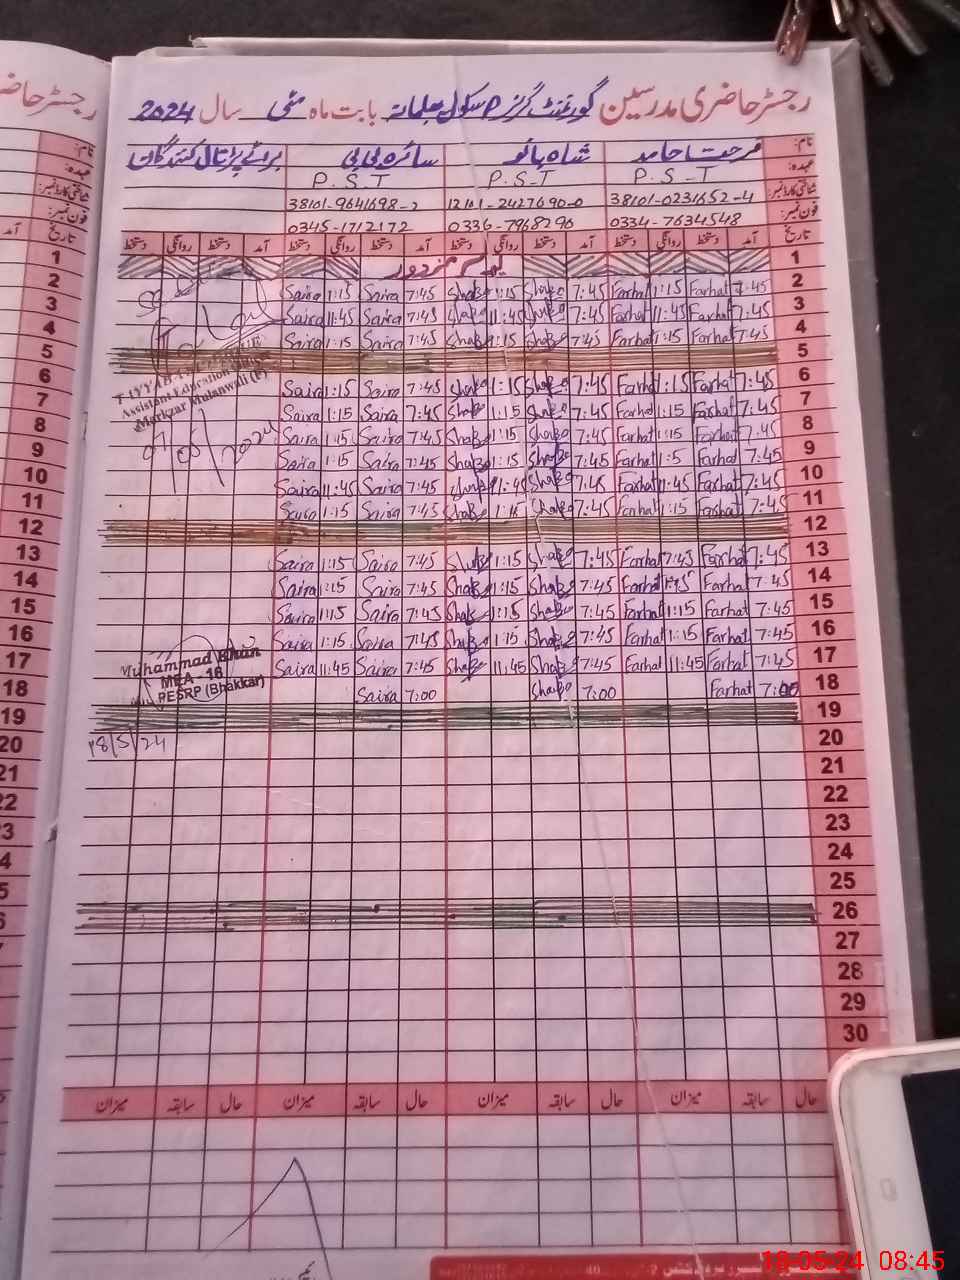 رجسٹر حاضری مدرسین گورنمنٹ گرلز P سکول بابت ماہ مئی سال 2024
نام: فرحت حامد شاہ بانو سائرہ بی بی برائے پڑتال کنندگان
عہدہ: P.S.T P.S.T P.S.T
شناختی کارڈ نمبر: 38101-0231652-4 12101-2427690-0 38101-9641698-2
فون نمبر: 0334-7634548 0336-7968290 0345-1712172
تاریخ آمد دستخط روانگی دستخط آمد دستخط روانگی دستخط آمد دستخط روانگی دستخط آمد دستخط روانگی دستخط
1 یوم مزدور
2 7:45 Farhat 1:15 Farhat 7:45 Shabo 1:15 Shabo 7:45 Saira 1:15 Saira
3 7:45 Farhat 11:45 Farhat 7:45 Shabo 11:45 Shabo 7:45 Saira 11:45 Saira
4 7:45 Farhat 1:15 Farhat 7:45 Shabo 1:15 Shabo 7:45 Saira 1:15 Saira
5
6 7:45 Farhat 1:15 Farhat 7:45 Shabo 1:15 Shabo 7:45 Saira 1:15 Saira
7 7:45 Farhat 1:15 Farhat 7:45 Shabo 1:15 Shabo 7:45 Saira 1:15 Saira
8 7:45 Farhat 1:15 Farhat 7:45 Shabo 1:15 Shabo 7:45 Saira Saira
9 7:45 Farhat 1:5 Farhat 7:45 Shabo 1:15 Shabo 7:45 Saira 1:15 Saira
10 7:45 Farhat 11:45 Farhat 7:45 Shabo 11:45 Shabo 7:45 Saira 11:45 Saira
11 7:45 Farhat 1:15 Farhat 7:45 Shabo 1:15 Shabo 7:45 Saira 1:15 Saira
12
13 7:45 Farhat 7:45 Farhat 7:45 Shabo 1:15 Shabo 7:45 Saira 1:15 Saira
14 7:45 Farhat Farhat 7:45 Shabo 1:15 Shabo 7:45 Saira 1:15 Saira
15 7:45 Farhat 1:15 Farhat 7:45 Shabo 1:15 Shabo 7:45 Saira 1:15 Saira
16 7:45 Farhat 1:15 Farhat 7:45 Shabo 1:15 Shabo 7:45 Saira 1:15 Saira
17 7:45 Farhat 11:45 Farhat 7:45 Shabo 11:45 Shabo 7:45 Saira 11:45 Saira
18 7:00 Farhat 7:00 Shabo 7:00 Saira
19
20
21
22
23
24
25
26
27
28
29
30
Assistant Education Officer
Markzar Mulanwali (F)
07/05/2024
Muhammad Khan
MEA - 18
PESRP (Bhakkar)
18/5/24
حال سابقہ میزان حال سابقہ میزان حال سابقہ میزان حال سابقہ میزان
رجسٹر حاضری
آمد
20
21
22
18-05-24 08:45